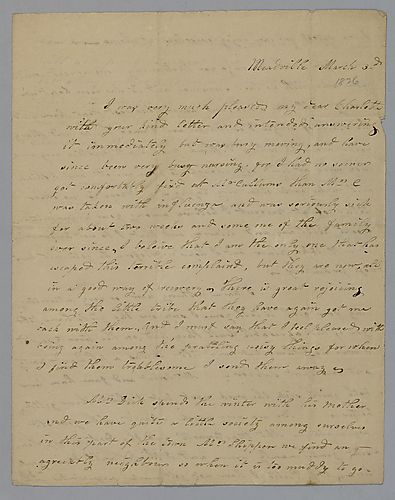 Meadville March 3d
1826
I was very much pleased my dear Charlotte
with your kind letter and intended answering
it immediately but was busy moving, and have
since been very busy nursing, for I had no sooner
got comfortably fixed at than Mrs C
was taken with influenza and was seriously sick
for about two weeks and some one of the family
ever since, I beleive that I am the only one that has
escaped this terrible complaint, but they are now, all
in a good way of recovery, there is great rejoicing
among the little tribe that they have again got me
back with them, and I must say that I feel pleased with
being again among the prattling noisy things for when
I find them troublesome I send them away
Mrs Dick spends the winter with his mother,
and we have quite a little society among ourselves
in this part of the town Mrs Shippen we find an
agreeable neighbour so when it is too muddy to go